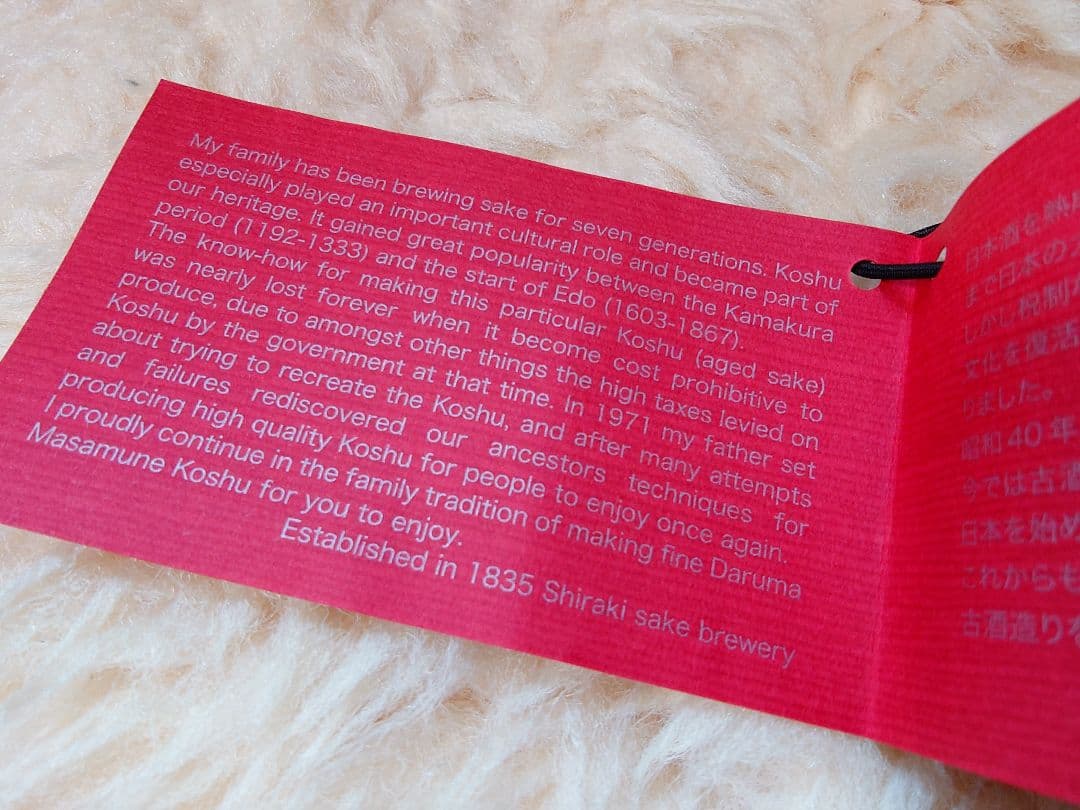 My family has been brewing sake for seven generations. Koshu
especially played an important cultural role and became part of
our heritage. It gained great popularity between the Kamakura
period (1192-1333) and the start of Edo (1603-1867).
The know-how for making this particular Koshu (aged sake)
was nearly lost forever when it become cost prohibitive to
produce, due to amongst other things the high taxes levied on
Koshu by the government at that time. In 1971 my father set
about trying to recreate the Koshu, and after many attempts
and failures rediscovered our ancestors techniques for
producing high quality Koshu for people to enjoy once again.
I proudly continue in the family tradition of making fine Daruma
Masamune Koshu for you to enjoy.
Established in 1835 Shiraki sake brewery
日本酒を熟
まで日本の
しかし税制
文化を復活
りました。
昭和40年
今では古酒
日本を始め
これからも
古酒造りを